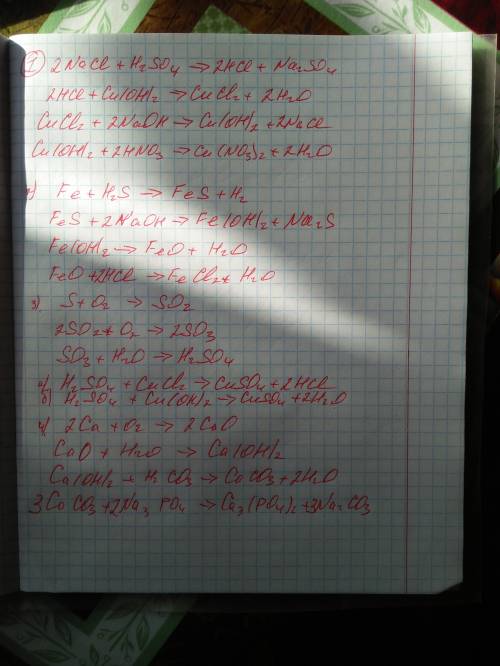 1) 2NaCl + H2SO4 → 2HCl + Na2SO4
2HCl + Cu(OH)2 → CuCl2 + 2H2O
CuCl2 + 2NaOH → Cu(OH)2 + 2NaCl
Cu(OH)2 + 2HNO3 → Cu(NO3)2 + 2H2O
2) Fe + H2S → FeS + H2
FeS + 2NaOH → Fe(OH)2 + Na2S
Fe(OH)2 → FeO + H2O
FeO + 2HCl → FeCl2 + H2O
3) S + O2 → SO2
2SO2 + O2 → 2SO3
SO3 + H2O → H2SO4
а) H2SO4 + CuCl2 → CuSO4 + 2HCl
б) H2SO4 + Cu(OH)2 → CuSO4 + 2H2O
4) 2Ca + O2 → 2CaO
CaO + H2O → Ca(OH)2
Ca(OH)2 + H2CO3 → CaCO3 + 2H2O
3CaCO3 + 2Na3PO4 → Ca3(PO4)2 + 3Na2CO3